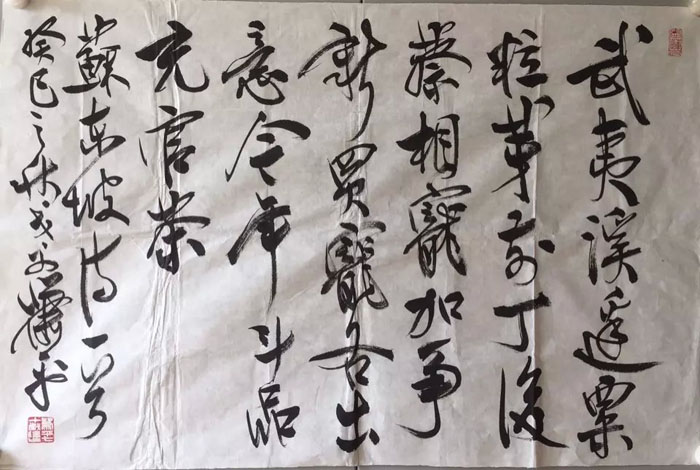 武夷溪邊粟
粒芽前丁後
蔡相寵加争
新買寵各出
意今年斗品
充官茶
蘇东坡诗一首
癸巳之秋